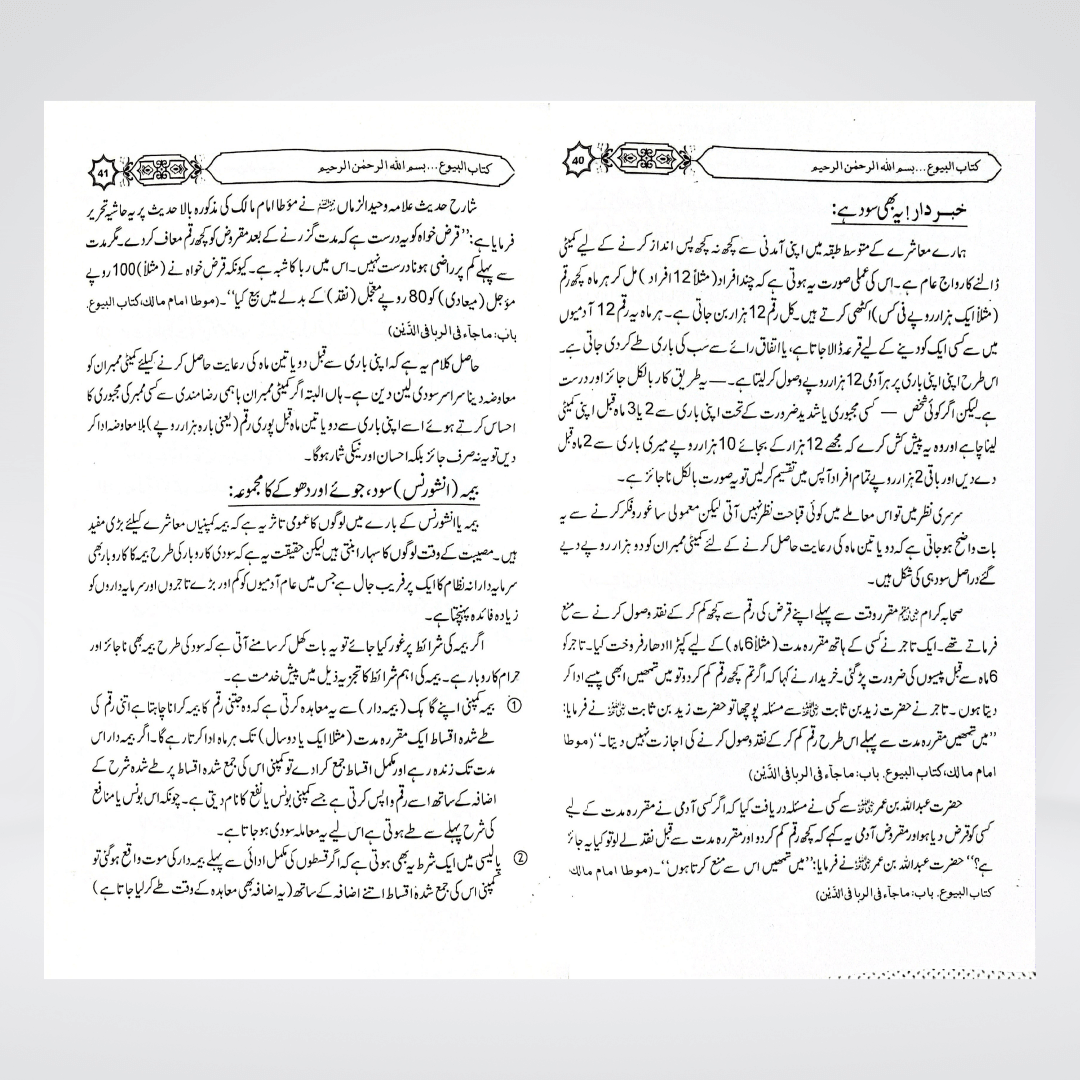 کتاب البیوع...بسم اللہ الرحمٰن الرحیم
40
خبردار! یہ بھی سود ہے:
ہمارے معاشرے کے متوسط طبقہ میں اپنی آمدنی سے کچھ نہ کچھ پس انداز کرنے کے لیے کمیٹی
ڈالنے کا رواج عام ہے۔ اس کی عملی صورت یہ ہوتی ہے کہ چند افراد (مثلاً 12 افراد) مل کر ہر ماہ کچھ رقم
(مثلاً ایک ہزار روپے فی کس) اکٹھی کرتے ہیں۔ کل رقم 12 ہزار بن جاتی ہے۔ ہر ماہ یہ رقم 12 آدمیوں
میں سے کسی ایک کو دینے کے لیے قرعہ ڈالا جاتا ہے، یا اتفاق رائے سے سب کی باری طے کر دی جاتی ہے۔
اس طرح اپنی اپنی باری پر ہر آدمی 12 ہزار روپے وصول کر لیتا ہے۔ — یہ طریق کار بالکل جائز اور درست
ہے۔ لیکن اگر کوئی شخص — کسی مجبوری یا شدید ضرورت کے تحت اپنی باری سے 2 یا 3 ماہ قبل اپنی کمیٹی
لینا چاہے اور وہ یہ پیش کش کرے کہ مجھے 12 ہزار کے بجائے 10 ہزار روپے میری باری سے 2 ماہ قبل
دے دیں اور باقی 2 ہزار روپے تمام افراد آپس میں تقسیم کر لیں تو یہ صورت بالکل ناجائز ہے۔
سرسری نظر میں تو اس معاملے میں کوئی قباحت نظر نہیں آتی لیکن معمولی سا غور و فکر کرنے سے یہ
بات واضح ہو جاتی ہے کہ دو یا تین ماہ کی رعایت حاصل کرنے کے لئے کمیٹی ممبران کو دو ہزار روپے دیے
گئے دراصل سود ہی کی شکل ہیں۔
صحابہ کرام رضی اللہ عنہم مقررہ وقت سے پہلے اپنے قرض کی رقم سے کچھ کم کر کے نقد وصول کرنے سے منع
فرماتے تھے۔ ایک تاجر نے کسی کے ہاتھ مقررہ مدت (مثلاً 6 ماہ) کے لیے کپڑا ادھار فروخت کیا۔ تاجر کو
6 ماہ سے قبل پیسوں کی ضرورت پڑ گئی۔ خریدار نے کہا کہ اگر تم کچھ رقم کم کر دو تو میں تمھیں ابھی پیسے ادا کر
دیتا ہوں۔ تاجر نے حضرت زید بن ثابت رضی اللہ عنہ سے مسئلہ پوچھا تو حضرت زید بن ثابت رضی اللہ عنہ نے فرمایا:
”میں تمھیں مقررہ مدت سے پہلے اس طرح رقم کم کر کے نقد وصول کرنے کی اجازت نہیں دیتا۔“ (موطا
امام مالك، كتاب البيوع، باب: ماجآء فى الربا فى الدَّين)
حضرت عبداللہ بن عمر رضی اللہ عنہ سے کسی نے مسئلہ دریافت کیا کہ اگر کسی آدمی نے مقررہ مدت کے لیے
کسی کو قرض دیا ہو اور مقروض آدمی یہ کہے کہ کچھ رقم کم کر دو اور مقررہ مدت سے قبل نقد لے لو تو کیا یہ جائز
ہے؟“ حضرت عبداللہ بن عمر رضی اللہ عنہ نے فرمایا: ”میں تمھیں اس سے منع کرتا ہوں“۔ (موطا امام مالك
كتاب البيوع، باب: ماجآء فى الربا فى الدَّين)
کتاب البیوع...بسم اللہ الرحمٰن الرحیم
41
شارح حدیث علامہ وحید الزماں رحمہ اللہ نے مؤطا امام مالک کی مذکورہ بالا حدیث پر یہ حاشیہ تحریر
فرمایا ہے: ”قرض خواہ کو یہ درست ہے کہ مدت گزرنے کے بعد مقروض کو کچھ رقم معاف کر دے۔ مگر مدت
سے پہلے کم پر راضی ہونا درست نہیں۔ اس میں ربا کا شبہ ہے۔ کیونکہ قرض خواہ نے (مثلاً) 100 روپے
مؤجل (میعادی) کو 80 روپے معجّل (نقد) کے بدلے میں بیع کیا“۔ (موطا امام مالك، كتاب البيوع،
باب: ماجآء فى الربا فى الدَّين)
حاصل کلام یہ ہے کہ اپنی باری سے قبل دو یا تین ماہ کی رعایت حاصل کرنے کیلئے کمیٹی ممبران کو
معاوضہ دینا سراسر سودی لین دین ہے۔ ہاں البتہ اگر کمیٹی ممبران باہمی رضامندی سے کسی ممبر کی مجبوری کا
احساس کرتے ہوئے اسے اپنی باری سے دو یا تین ماہ قبل پوری رقم (یعنی بارہ ہزار روپے) بلا معاوضہ ادا کر
دیں تو یہ نہ صرف جائز بلکہ احسان اور نیکی شمار ہوگا۔
بیمہ (انشورنس) سود، جوئے اور دھوکے کا مجموعہ:
بیمہ یا انشورنس کے بارے میں لوگوں کا عمومی تاثر یہ ہے کہ بیمہ کمپنیاں معاشرے کیلئے بڑی مفید
ہیں۔ مصیبت کے وقت لوگوں کا سہارا بنتی ہیں لیکن حقیقت یہ ہے کہ سودی کاروبار کی طرح بیمہ کا کاروبار بھی
سرمایہ دارانہ نظام کا ایک پرفریب جال ہے جس میں عام آدمیوں کو کم اور بڑے تاجروں اور سرمایہ داروں کو
زیادہ فائدہ پہنچتا ہے۔
اگر بیمہ کی شرائط پر غور کیا جائے تو یہ بات کھل کر سامنے آتی ہے کہ سود کی طرح بیمہ بھی ناجائز اور
حرام کاروبار ہے۔ بیمہ کی اہم شرائط کا تجزیہ ذیل میں پیش خدمت ہے۔
① بیمہ کمپنی اپنے گاہک (بیمہ دار) سے یہ معاہدہ کرتی ہے کہ وہ جتنی رقم کا بیمہ کرانا چاہتا ہے اتنی رقم کی
طے شدہ اقساط ایک مقررہ مدت (مثلا ایک یا دو سال) تک ہر ماہ ادا کرتا رہے گا۔ اگر بیمہ دار اس
مدت تک زندہ رہے اور مکمل اقساط جمع کرادے تو کمپنی اس کی جمع شدہ اقساط پر طے شدہ شرح کے
اضافہ کے ساتھ اسے رقم واپس کرتی ہے جسے کمپنی بونس یا نفع کا نام دیتی ہے۔ چونکہ اس بونس یا منافع
کی شرح پہلے سے طے ہوتی ہے اس لیے یہ معاملہ سودی ہو جاتا ہے۔
② پالیسی میں ایک شرط یہ بھی ہوتی ہے کہ اگر قسطوں کی مکمل ادائی سے پہلے بیمہ دار کی موت واقع ہوگئی تو
کمپنی اس کی جمع شدہ اقساط اتنے اضافہ کے ساتھ (یہ اضافہ بھی معاہدہ کے وقت طے کر لیا جاتا ہے)